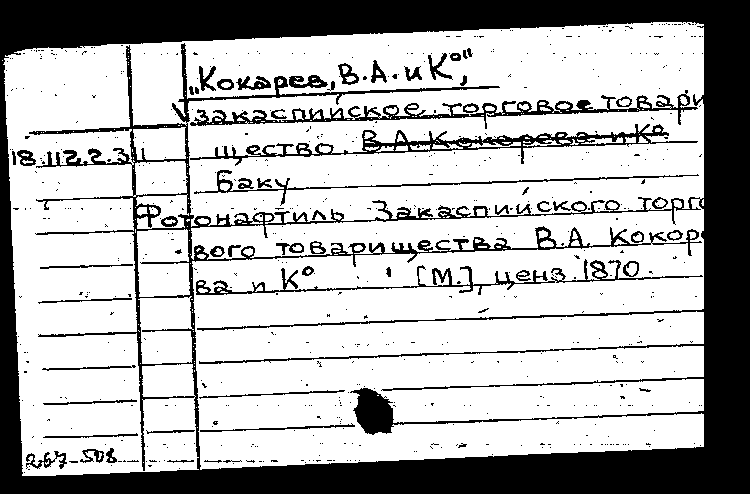 „Кокарев, В.А. и К°",
закаспийское торговое товари
18.112.2.3 щество. В.А. Кокарева и К°
Баку
Фотонафтиль Закаспийского торго
вого товарищества В.А. Кокоре
ва и К°. [М.], ценз. 1870.
267-508